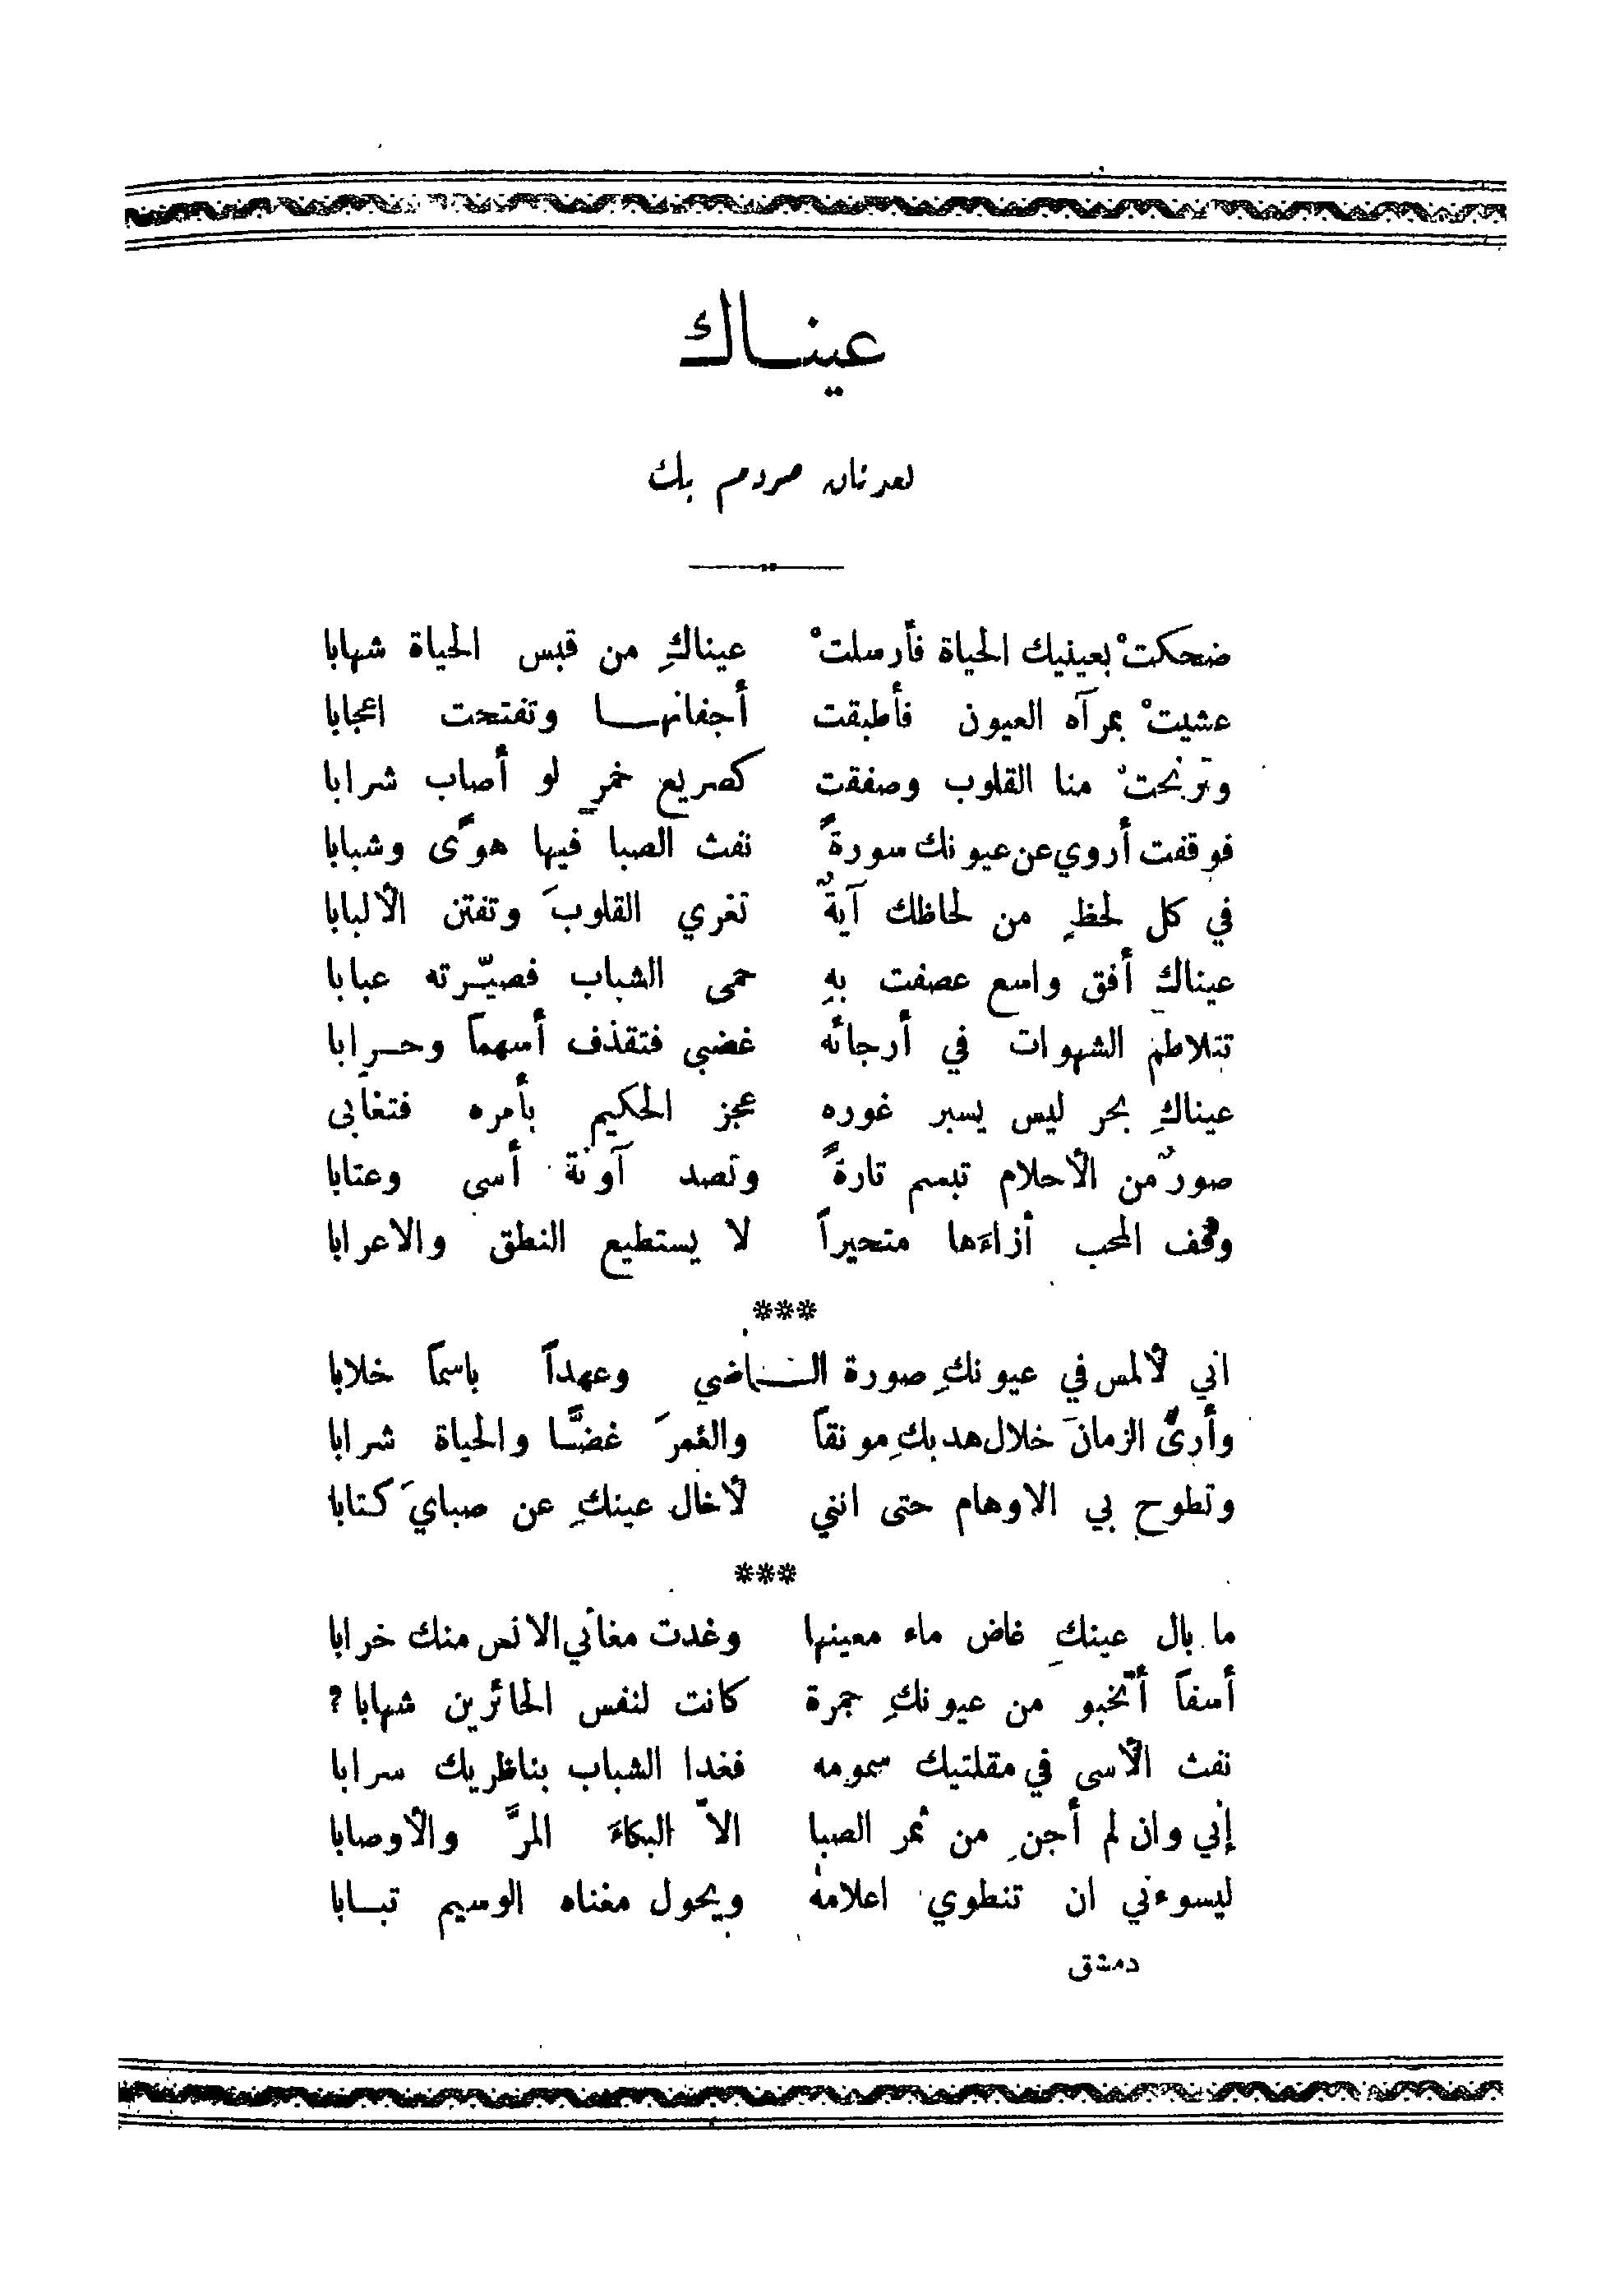 عيناك
لعدنان مردم بك
ضحكتْ بعينيك الحياة فأرسلتْ عيناكِ من قبس الحياة شهابا
عشيتْ بمرآه العيون فأطبقت أجفانها وتفتحت اعجابا
وترنحتْ منا القلوب وصفقت كصريع خمرٍ لو أصاب شرابا
فوقفت أروي عن عيونك سورةً نفث الصبا فيها هوًى وشبابا
في كل لحظٍ من لحاظك آيةٌ تغري القلوبَ وتفتن الألبابا
عيناكِ أفق واسع عصفت بهِ حمى الشباب فصيّرته عبابا
تتلاطم الشهوات في أرجائه غضبى فتقذف أسهماً وحرابا
عيناكِ بحر ليس يسبر غوره عجز الحكيم بأمره فتغابى
صورٌ من الأحلام تبسم تارةً وتصد آونة أسى وعتابا
وقف المحب أزاءَها متحيراً لا يستطيع النطق والاعرابا
***
اني لألمس في عيونكِ صورة الماضي وعهداً باسماً خلابا
وأرى الزمانَ خلال هدبكِ مونقاً والعمرَ غضًّا والحياة شرابا
وتطوح بي الاوهام حتى انني لأخال عينكِ عن صبايَ كتابا
***
ما بال عينكِ غاض ماء معينها وغدت مغاني الانس منك خرابا
أسفاً أتخبو من عيونكِ جمرة كانت لنفس الحائرين شهابا؟
نفث الأسى في مقلتيك سمومه فغدا الشباب بناظريك سرابا
إني وان لم أجنِ من ثمر الصبا الاّ البكاءَ المرَّ والأوصابا
ليسوءني ان تنطوي اعلامه ويحول مغناه الوسيم تبابا
دمشق